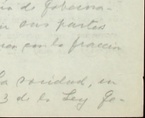 de Goberna-
en sus partes
por la fracción
La sanidad, en
3 de la Ley Ge-